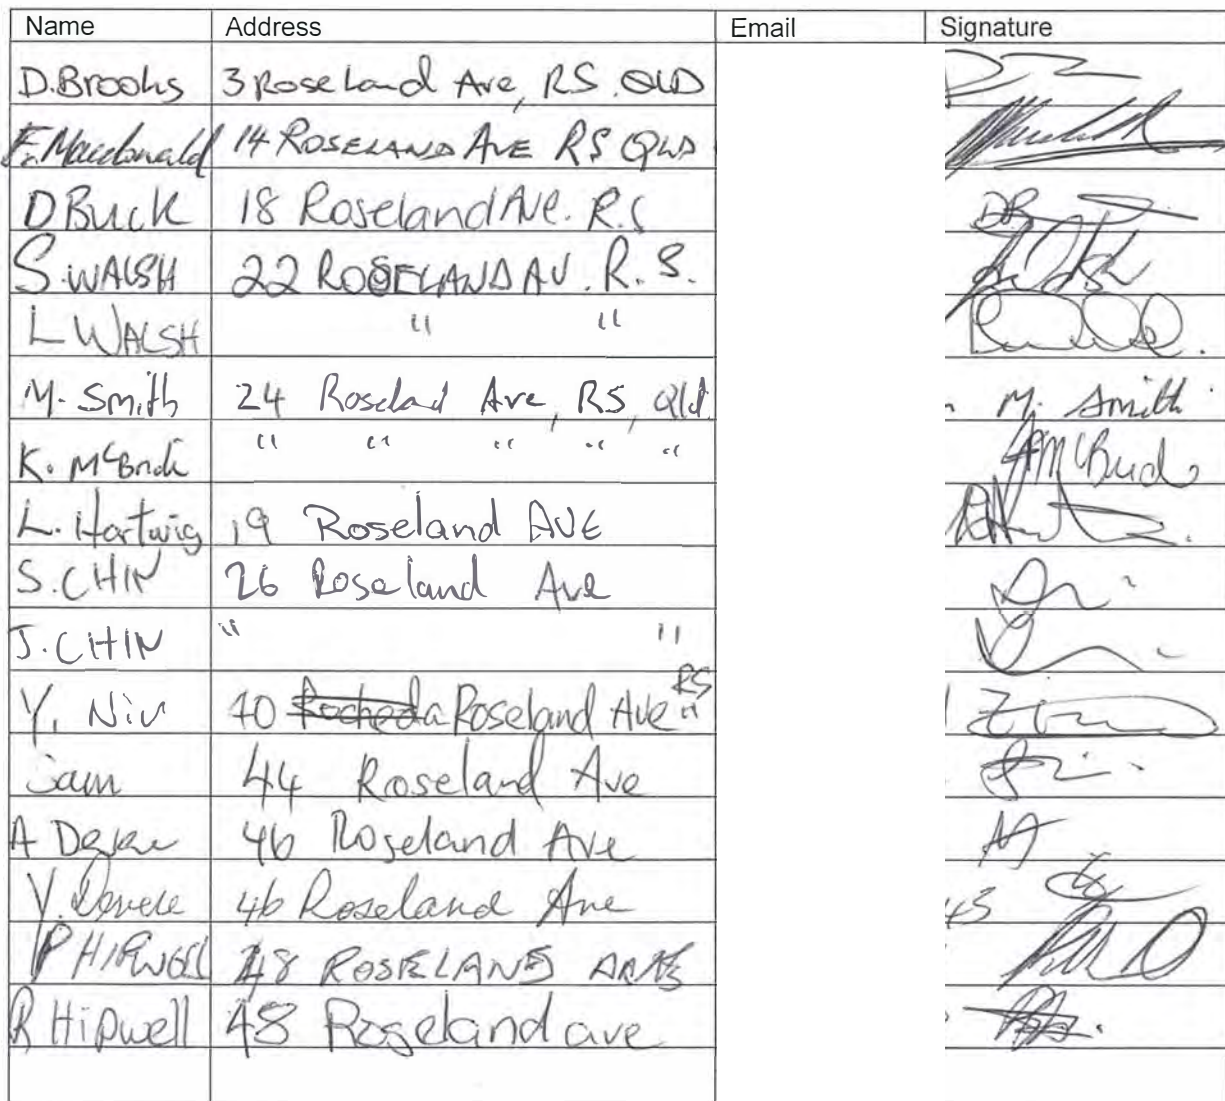 Name Address Email Signature
D.Brooks 3 Roseland Ave, RS. QLD
F. Macdonald 14 ROSELAND AVE RS QLD
D Buck 18 Roseland Ave. R.S
S. WALSH 22 ROSELAND AV. R. S.
L WALSH " "
M. Smith 24 Roselad Ave, RS, Qld. M. Smith
K. McBride " " " " " McBride
L. Hartwig 19 Roseland AVE
S. CHIN 26 Roseland Ave
J. CHIN " "
Y. Niu 40 Rocheda Roseland Ave RS "
Sam 44 Roseland Ave
A 46 Roseland Ave
Y. Devere 46 Roseland Ave 45
P HIPWELL 48 ROSELAND
R Hipwell 48 Roseland ave